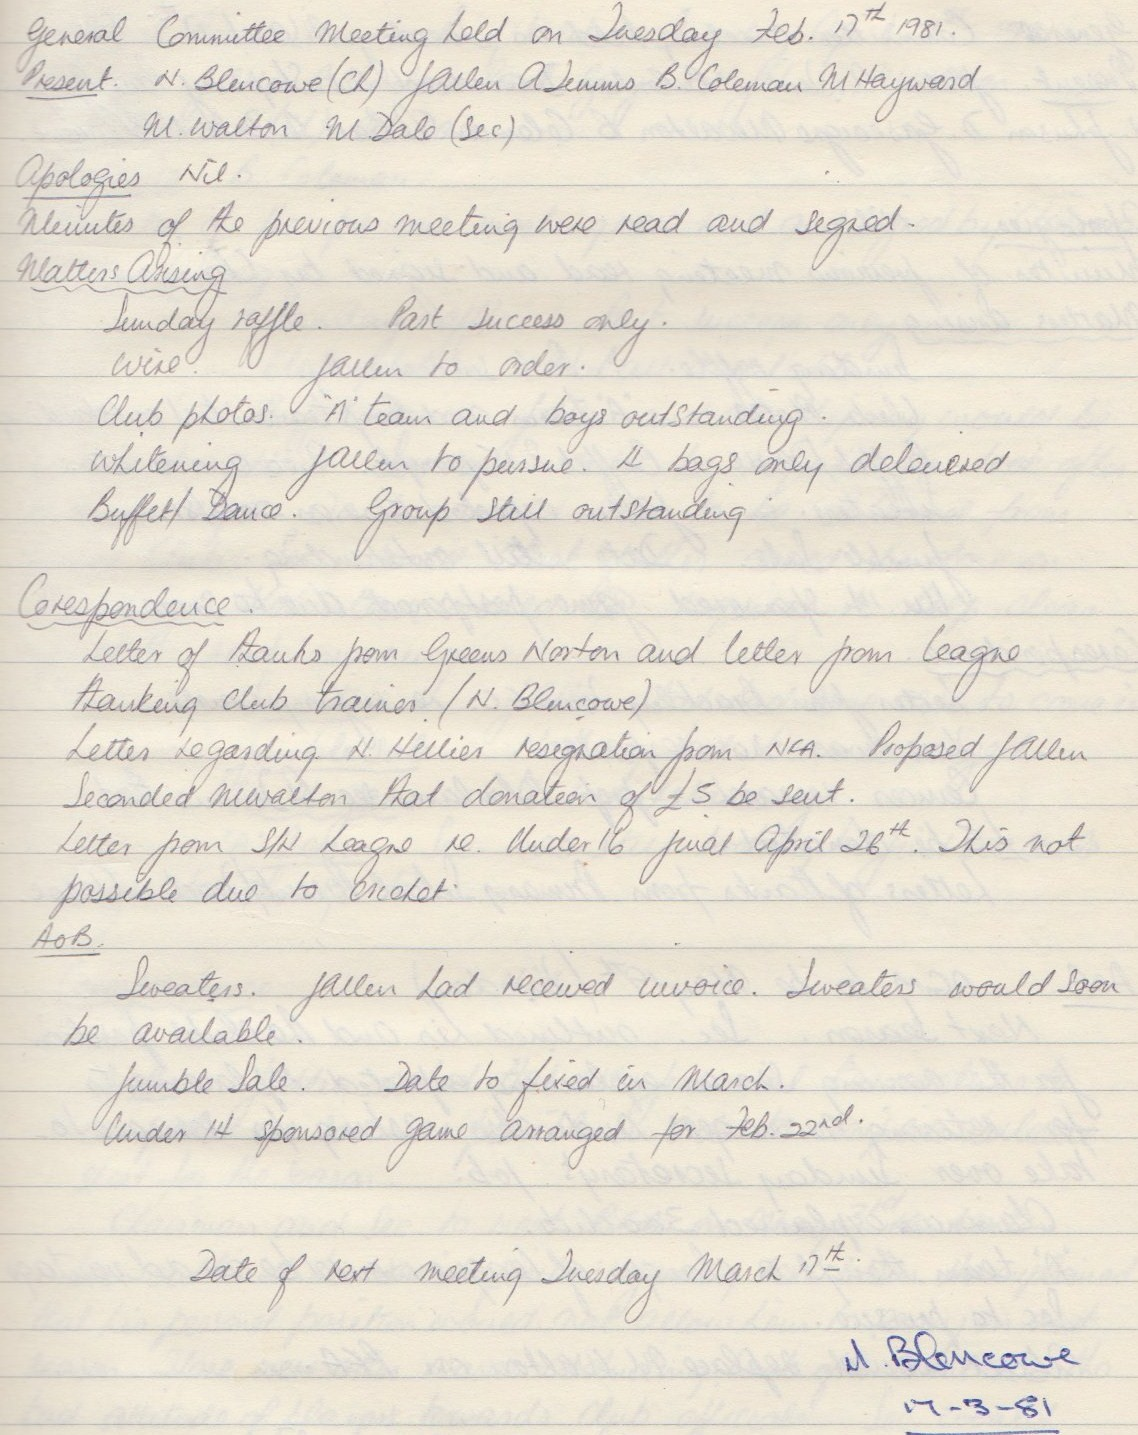 General Committee Meeting held on Tuesday Feb. 17th 1981.
Present. N. Blencowe (Ch) J Allen A Timms B. Coleman M Hayward
M. Walton M Dale (Sec)
Apologies Nil.
Minutes of the previous meeting were read and signed.
Matters Arising
Sunday raffle. Past success only.
Wire. J Allen to order.
Club photos. "A" team and boys outstanding.
Whitening J Allen to pursue. 4 bags only delivered
Buffet/Dance. Group still outstanding
Corespondence.
Letter of thanks from Greens Norton and letter from League
thanking club trainer. (N. Blencowe)
Letter regarding N. Hillier resignation from NFA. Proposed J Allen
Seconded M Walton that donation of £5 be sent.
Letter from S/N League re. Under 16 final April 26th. This not
possible due to cricket.
AOB.
Sweaters. J Allen had received invoice. Sweaters would soon
be available.
Jumble Sale. Date to fixed in March.
Under 14 sponsored game arranged for Feb. 22nd.
Date of next meeting Tuesday March 17th.
N. Blencowe
17-3-81